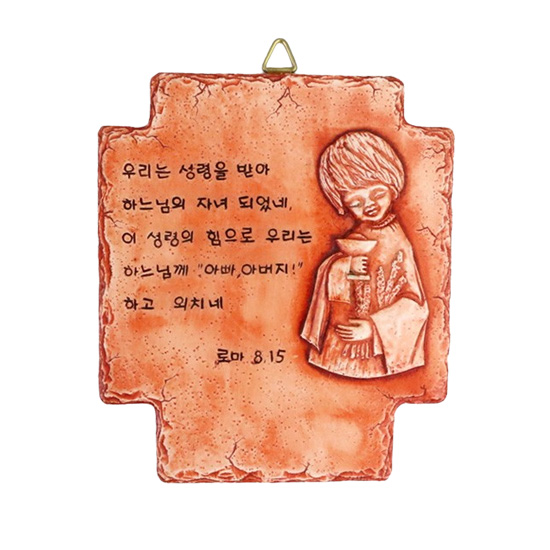 우리는 성령을 받아
하느님의 자녀 되었네,
이 성령의 힘으로 우리는
하느님께 "아빠,아버지!"
하고 외치네
로마 8.15